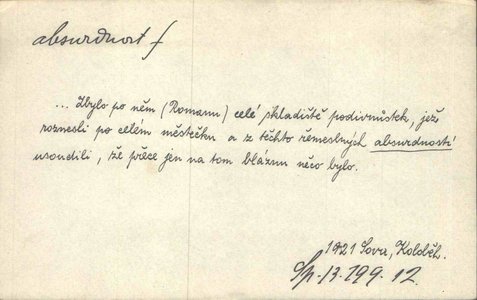 absurdnost f
... Zbylo po něm (Romanu) celé skladiště podivnůstek, jež
roznesli po celém městečku a z těchto řemeslných absurdností
usoudili, že přece jen na tom bláznu něco bylo.
1921 Sova, Kolděh.
Sp. 13. 199. 12.